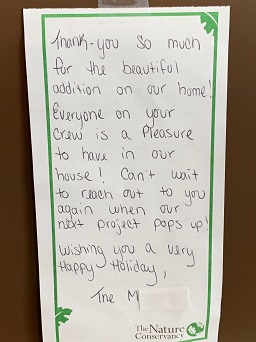 Thank-you so much
for the beautiful
addition on our home!
Everyone on your
crew is a pleasure
to have in our
house! Can't wait
to reach out to you
again when our
next project pops up!
Wishing you a very
Happy Holiday,
The M
The Nature
Conservancy